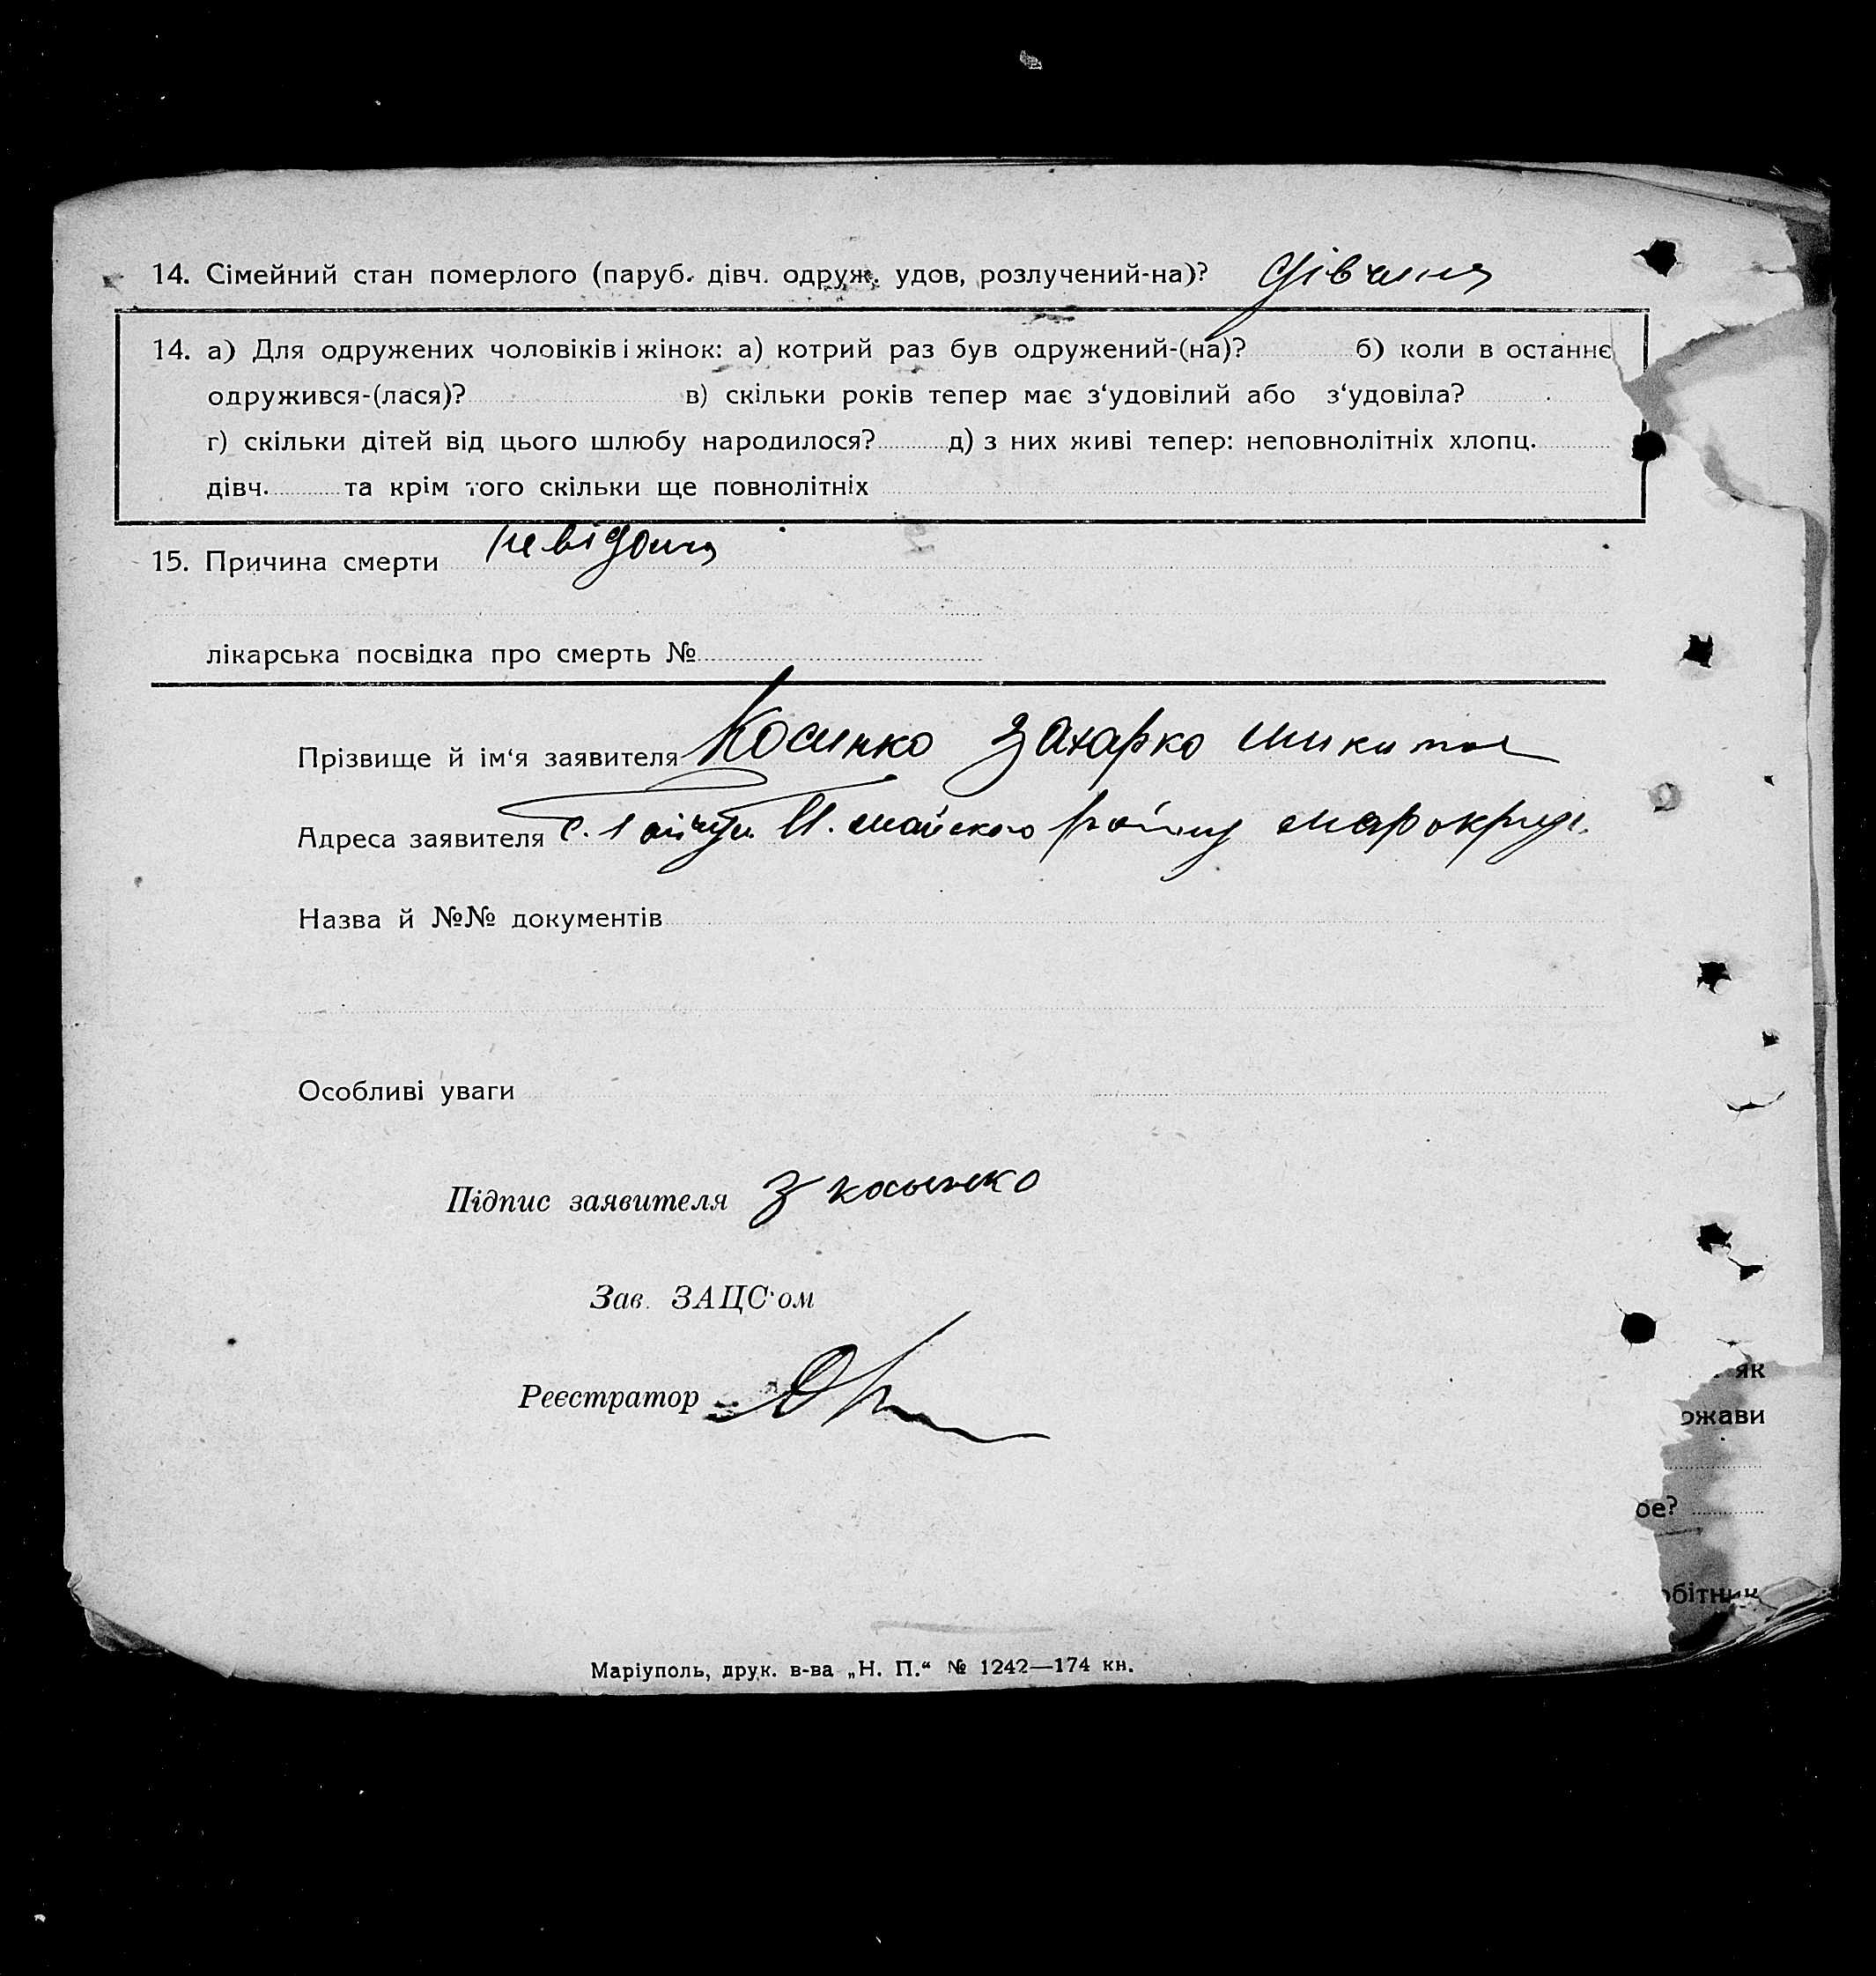 14. Сімейний стан померлого (паруб. дівч. одруж. удов, розлучений-на)? дівчина
14. а) Для одружених чоловіків і жінок: а) котрий раз був одружений-(на)? б) коли в останнє
одружився-(лася)? в) скільки років тепер має з‘удовілий або з‘удовіла?
г) скільки дітей від цього шлюбу народилося? д) з них живі тепер: неповнолітніх хлопц.
дівч. та крім того скільки ще повнолітніх
15. Причина смерти невідома
лікарська посвідка про смерть №
Прізвище й ім‘я заявителя Косинко Захарко
Адреса заявителя с. майского району марокруги
Назва й №№ документів
Особливі уваги
Підпис заявителя З Косинко
Зав. ЗАЦС‘ом
Реєстратор
як
ржави
ое?
обітник
Маріуполь, друк. в-ва „Н. П.“ № 1242—174 кн.